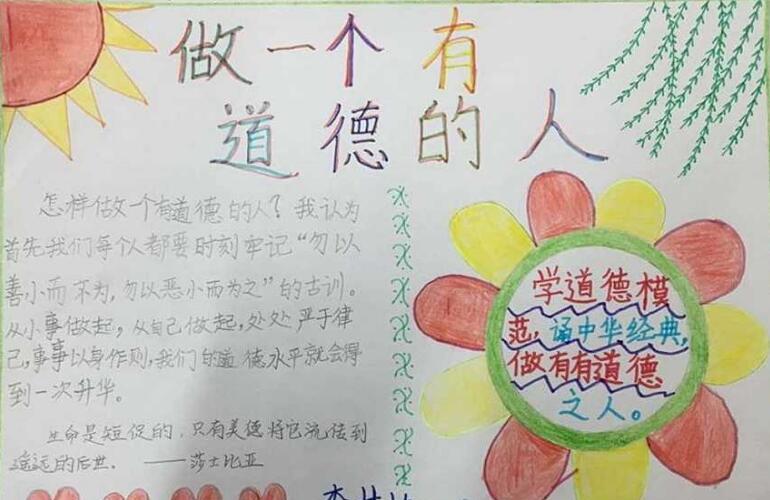 做一个有
道德的人
怎样做一个有道德的人？我认为
首先我们每个人都要时刻牢记“勿以
善小而不为，勿以恶小而为之”的古训。
从小事做起，从自己做起，处处严于律
己，事事以身作则，我们的道德水平就会得
到一次升华。
生命是短促的，只有美德将它流传到
遥远的后世。——莎士比亚
学道德模
范，诵中华经典，
做有有道德
之人。